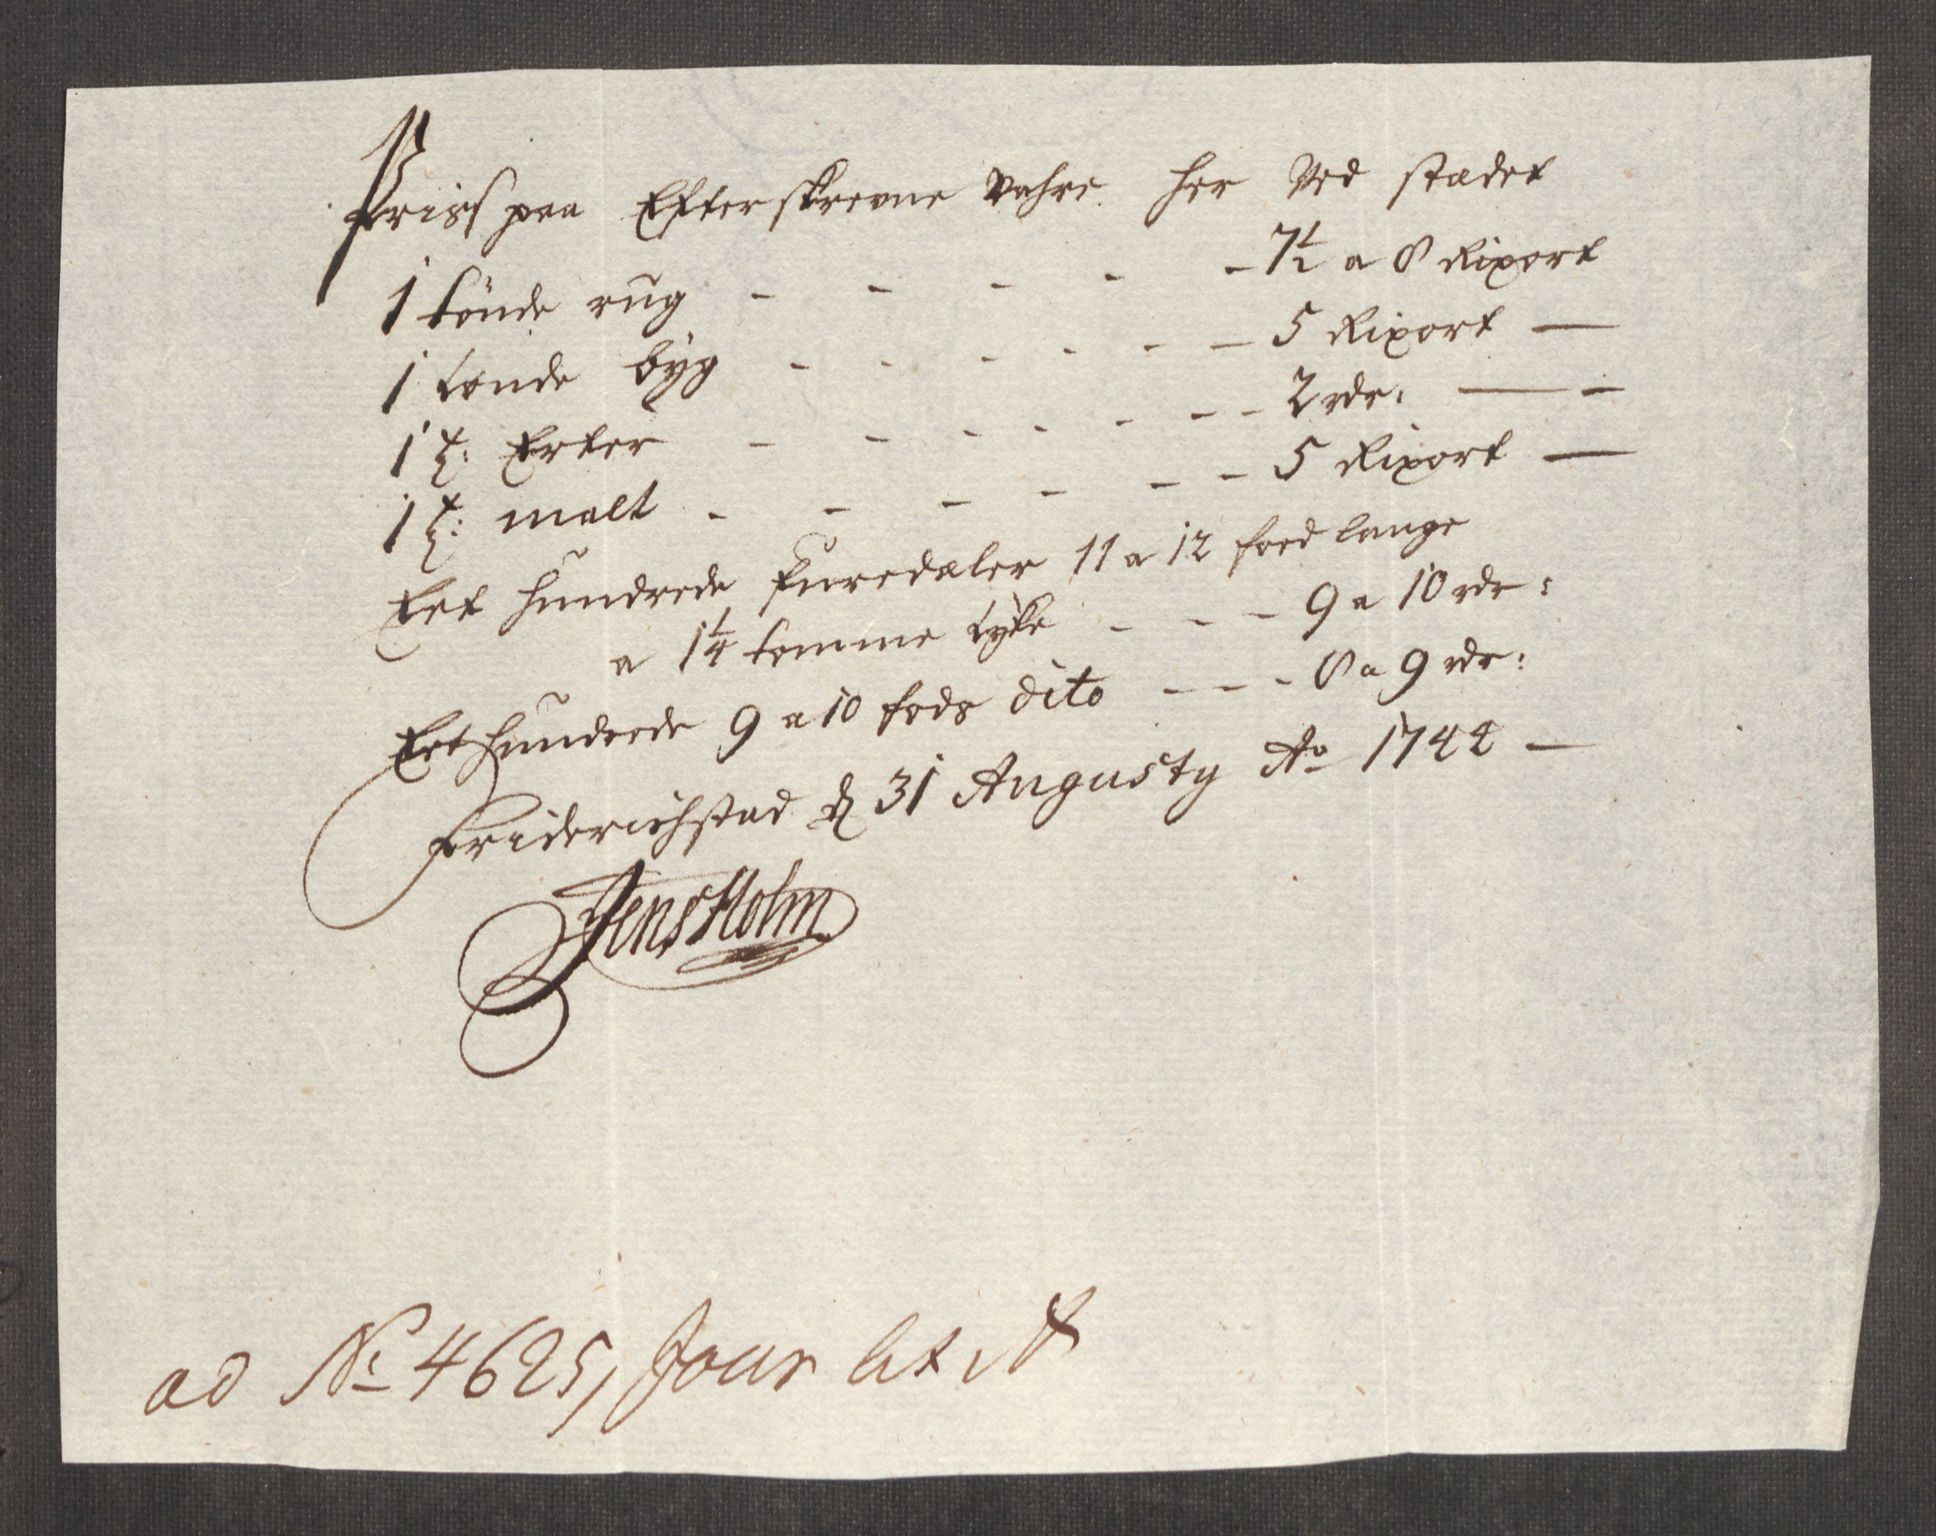 Priss paa Efterskrevne vahre her Ved stædet
1 tönde rug - - - - - 7½ a 8 Rixort
1 tønde býg - - - - - - 5 Rixort —
1 t: Erter - - - - - - - 2 rdr: — -
1 t: malt - - - - - - 5 Rixort —
Eet hundrede furedæler 11 a 12 foed lange
a 1¼ tomme tÿke - - - 9 a 10 rdr:
Eet hundrede 9 a 10 fods dito - - - 8 a 9 rdr:
Friderichstad d 31 Augusty Ao 1744 —
Jens Holm
ad No 4625, Jour lit A